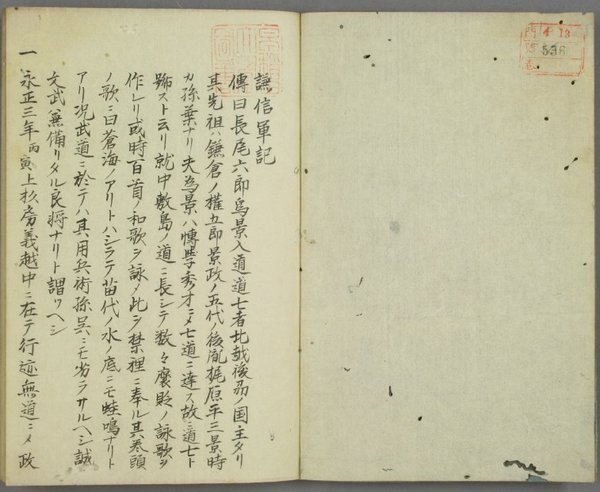 謙信軍記
傳曰長尾六郎為景入道道七者北越後刕ノ国主タリ
其先祖ハ鎌倉ノ權五郎景政ノ五代ノ後胤梶原平三景時
カ孫葉ナリ夫為景ハ博学秀才ニメ七道ニ達ス故ニ道七ト
號スト云リ就中敷島ノ道ニ長シテ数々褒貶ノ詠歌ヲ
作レリ或時百首ノ和歌ヲ詠メ此ヲ禁裡ニ奉ル其巻頭
ノ歌ニ曰蒼海ノアリトハシラテ苗代ノ水ノ底ニモ蛙鳴ナリト
アリ况武道ニ於テハ其用兵術孫呉ニモ劣ラサルヘシ誠
文武兼備リタル良将ナリト謂ツヘシ
一 永正三年丙寅上杉房義越中ニ在テ行跡無道ニメ政